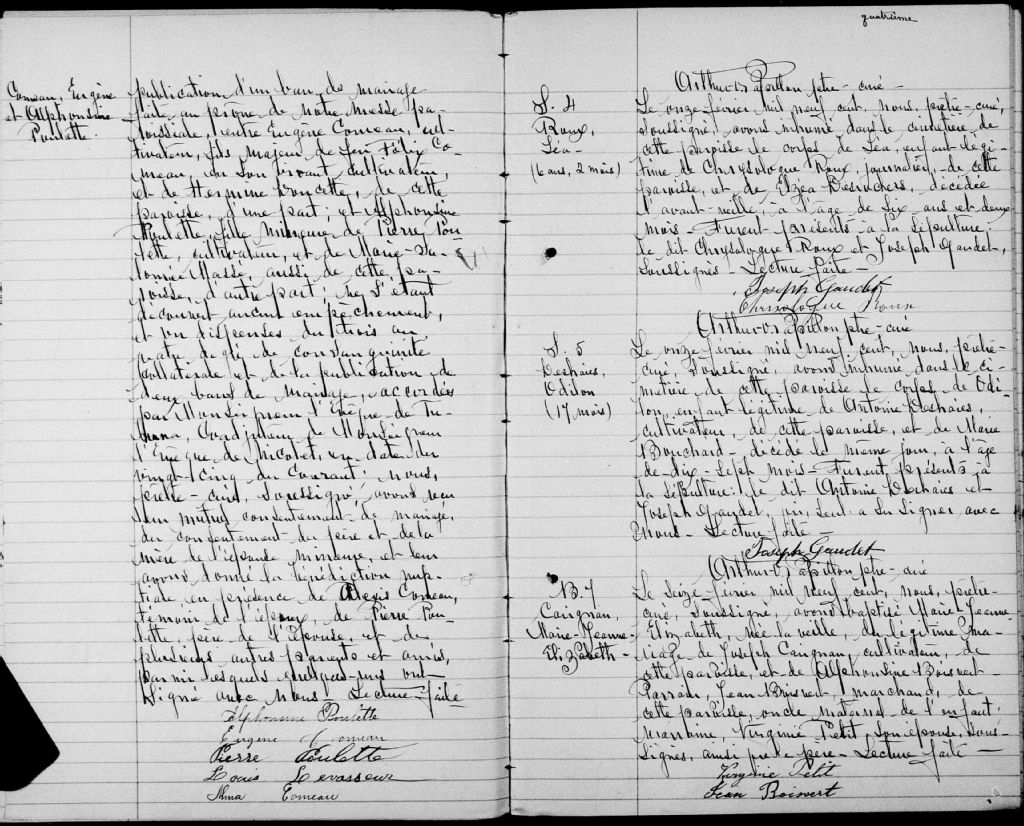 Comeau, Eugène
et Alphonsine
Poulette.
publication d'un ban de mariage
faite au prône de notre messe pa-
roissiale, entre Eugène Comeau, cul-
tivateur, fils majeur de feu Félix Co-
meau, en son vivant cultivateur,
et de Hermine Doucette, de cette
paroisse, d'une part; et Alphonsine
Poulette, fille mineure de Pierre Pou-
lette, cultivateur, et de Marie-Sa-
lomée Massé, aussi de cette pa-
roisse, d'autre part; ne s'étant
découvert aucun empêchement,
et vu dispenses du trois au
quatre degré de consanguinité
collatérale et de la publication de
deux bans de mariage, accordées
par Monseigneur l'Evêque de
Coadjuteur de Monseigneur
l'Evêque de Nicolet, en date du
vingt-cinq du courant; nous,
prêtre-curé, soussigné, avons reçu
leur mutuel consentement de mariage,
du consentement du père et de la
mère de l'épouse mineure, et leur
avons donné la bénédiction nup-
tiale en présence de Alexis Comeau,
témoin de l'époux, de Pierre Pou-
lette, père de l'épouse, et de
plusieurs autres parents et amis,
parmi lesquels quelques-uns ont
signé avec nous - Lecture faite
Alphonsine Poulette
Eugène Comeau
Pierre Poulette
Louis Levasseur
Alma Comeau
quatrième
Arthur-O. Papillon ptre-curé
S. 4
Roux,
Léa-
(6 ans, 2 mois)
Le onze février mil neuf cent, nous, prêtre-curé,
soussigné, avons inhumé dans le cimetière de
cette paroisse le corps de Léa, enfant légi-
time de Chrysologue Roux, journalier, de cette
paroisse, et de Elzéa Desruchers, décédée
l'avant-veille, à l'âge de six ans et deux
mois - Furent présents à la sépulture:
le dit Chrysologue Roux et Joseph Gaudet,
soussignés - Lecture faite -
Joseph Gaudet
Chrysologue Roux
Arthur-O. Papillon ptre-curé
S. 5
Deshaies,
Odilon
(17 mois)
Le onze février mil neuf cent, nous, prêtre-
curé, soussigné, avons inhumé dans le ci-
metière de cette paroisse le corps de Odi-
lon, enfant légitime de Antoine Deshaies,
cultivateur, de cette paroisse, et de Marie
Bouchard - décédé le même jour, à l'âge
de dix-sept mois - Furent présents à
la sépulture: le dit Antoine Deshaies et
Joseph Gaudet, qui, seul a su signer avec
Nous - Lecture faite
Joseph Gaudet
Arthur-O. Papillon ptre-curé
B. 7
Carignan,
Marie-Jeanne-
Elizabeth -
Le seize février mil neuf cent, nous, prêtre-
curé, soussigné, avons baptisé Marie-Jeanne-
Elizabeth, née la veille, du légitime ma-
riage de Joseph Carignan, cultivateur, de
cette paroisse, et de Alphonsine Boisvert -
Parrain, Jean Boisvert, marchand, de
cette paroisse, oncle maternel de l'enfant;
marraine, Virginie Petit, son épouse, sous-
signés, ainsi que le père - Lecture faite -
Virginie Petit
Jean Boisvert